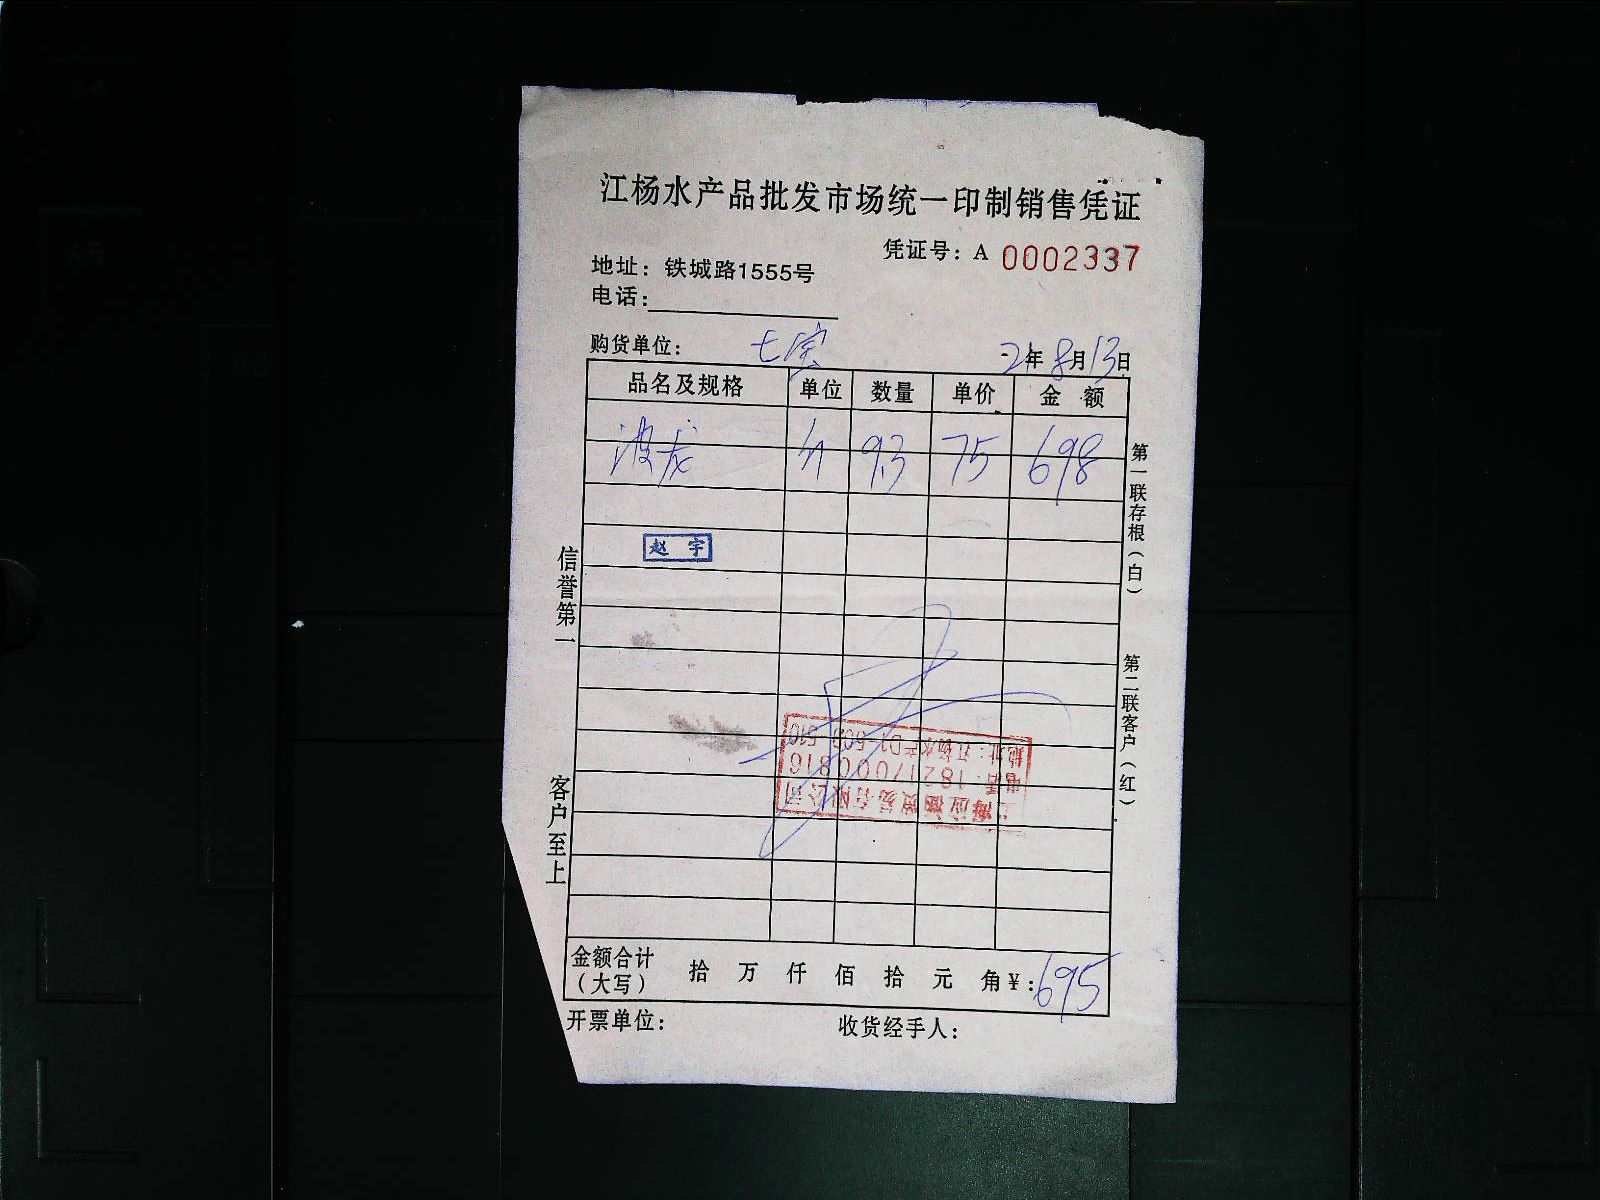 江杨水产品批发市场统一印制销售凭证
凭证号：A 0002337
地址：铁城路1555号
电话：
购货单位： 七宝
21年8月13日
品名及规格 单位 数量 单价 金 额
波龙 斤 9.3 75 698
赵 宇
上海应 贸易有限公司
电话：18217000816
地址：江杨水产D1-509 510
金额合计（大写） 拾 万 仟 佰 拾 元 角 ¥：695
开票单位： 收货经手人：
信誉第一
客户至上
第一联存根（白）
第二联客户（红）